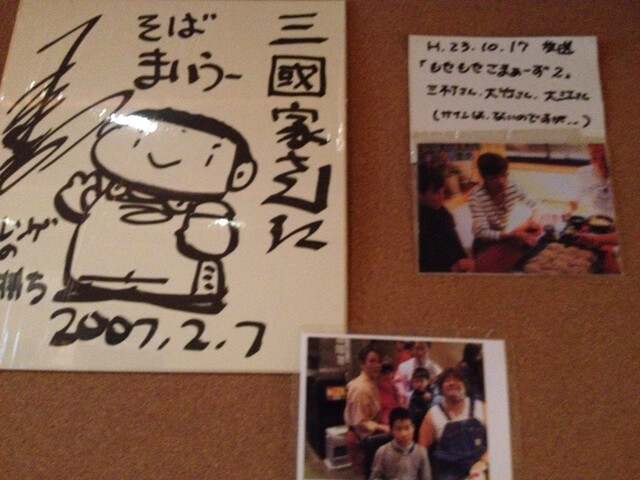 三國家さんに
そば
まいうー
2007.2.7
H.23.10.17 放送
「もせもせこまぁーず2」
三村さん、大竹さん、大江さん
(サインは、ないのですが…)